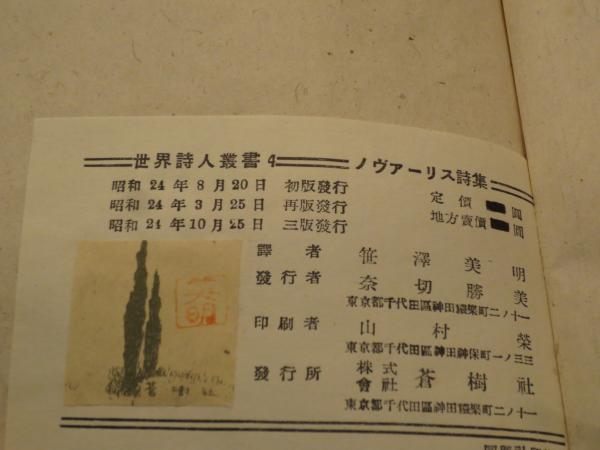 世界詩人叢書4 ノヴァーリス詩集
昭和24年8月20日 初版發行
昭和24年3月25日 再版發行
昭和24年10月25日 三版發行
定價 圓
地方賣價 圓
譯者 笹澤美明
發行者 奈切勝美
東京都千代田區神田猿樂町二ノ十一
印刷者 山村榮
東京都千代田區神田神保町一ノ三三
發行所 株式會社 蒼樹社
東京都千代田區神田猿樂町二ノ十一
美明
蒼樹社